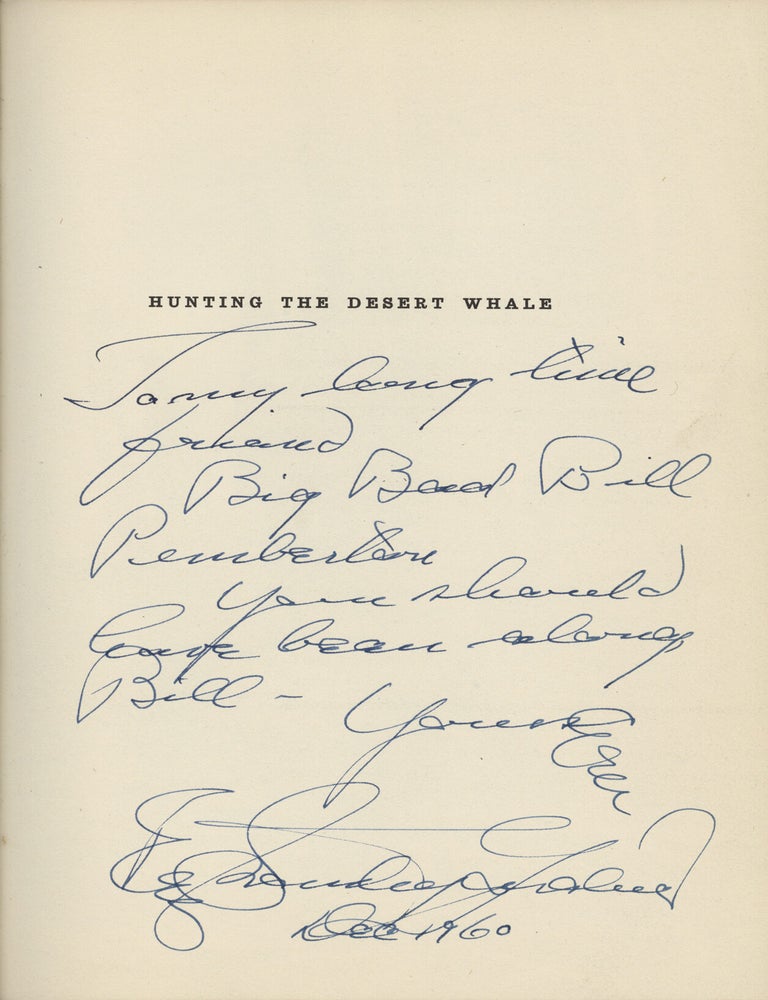 HUNTING THE DESERT WHALE
To my long time
friend
Big Bad Bill
Pemberton
You should
have been along
Bill -
Yours Ever
Erle Stanley Gardner
Dec 1960